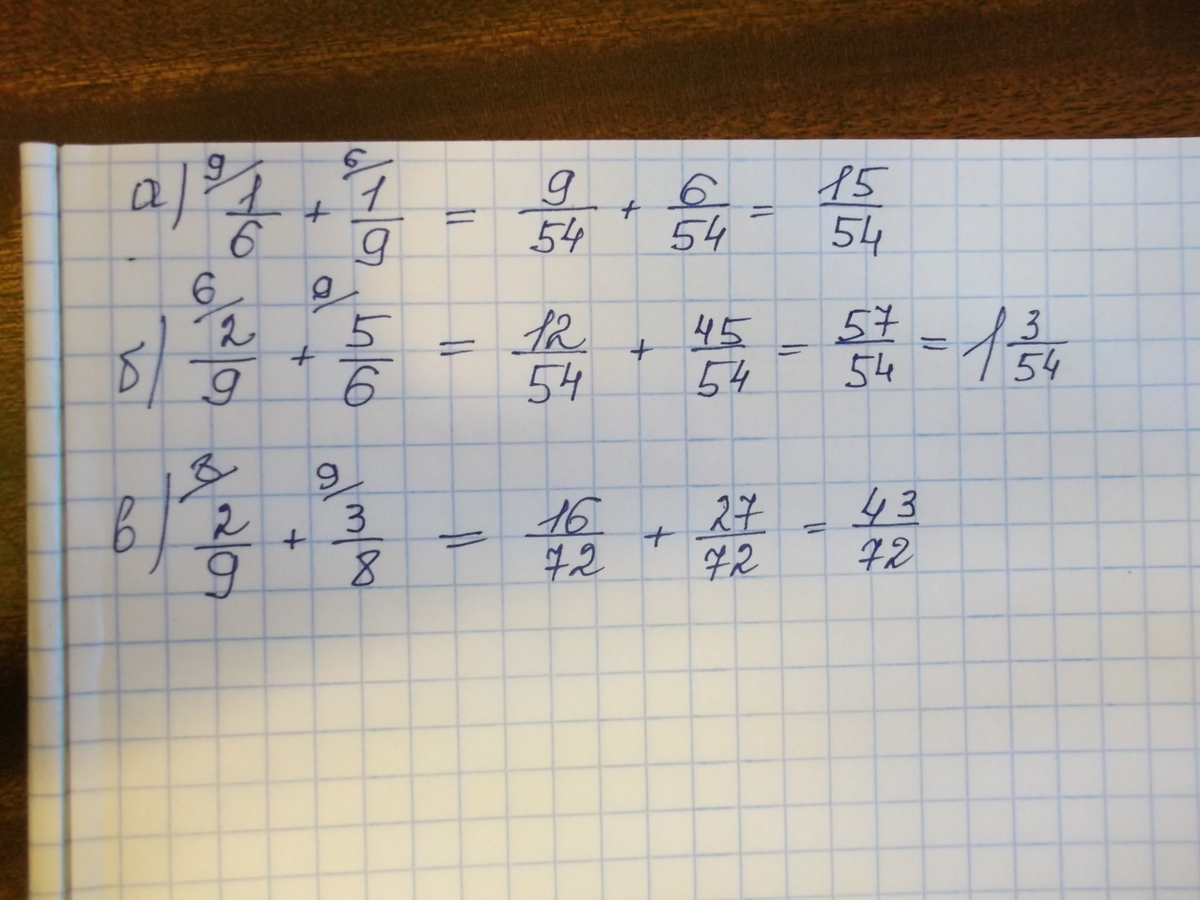 а) 9/ 1/6 + 6/ 1/9 = 9/54 + 6/54 = 15/54
б) 6/ 2/9 + 9/ 5/6 = 12/54 + 45/54 = 57/54 = 1 3/54
в) 8/ 2/9 + 9/ 3/8 = 16/72 + 27/72 = 43/72